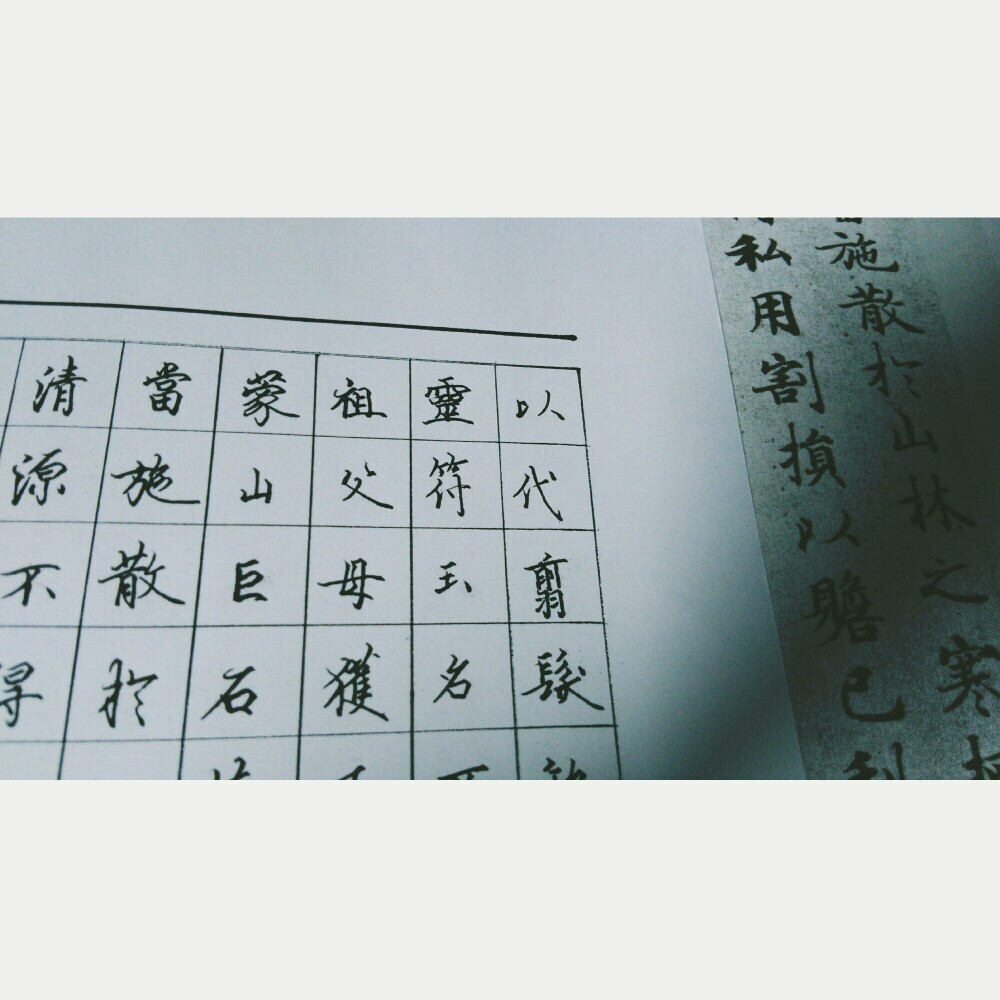 以代翦髮
靈符玉名不
祖父母獲
蒙山巨石
當施散於
清源不得
施散於山林之寒
私用割損以贍己利